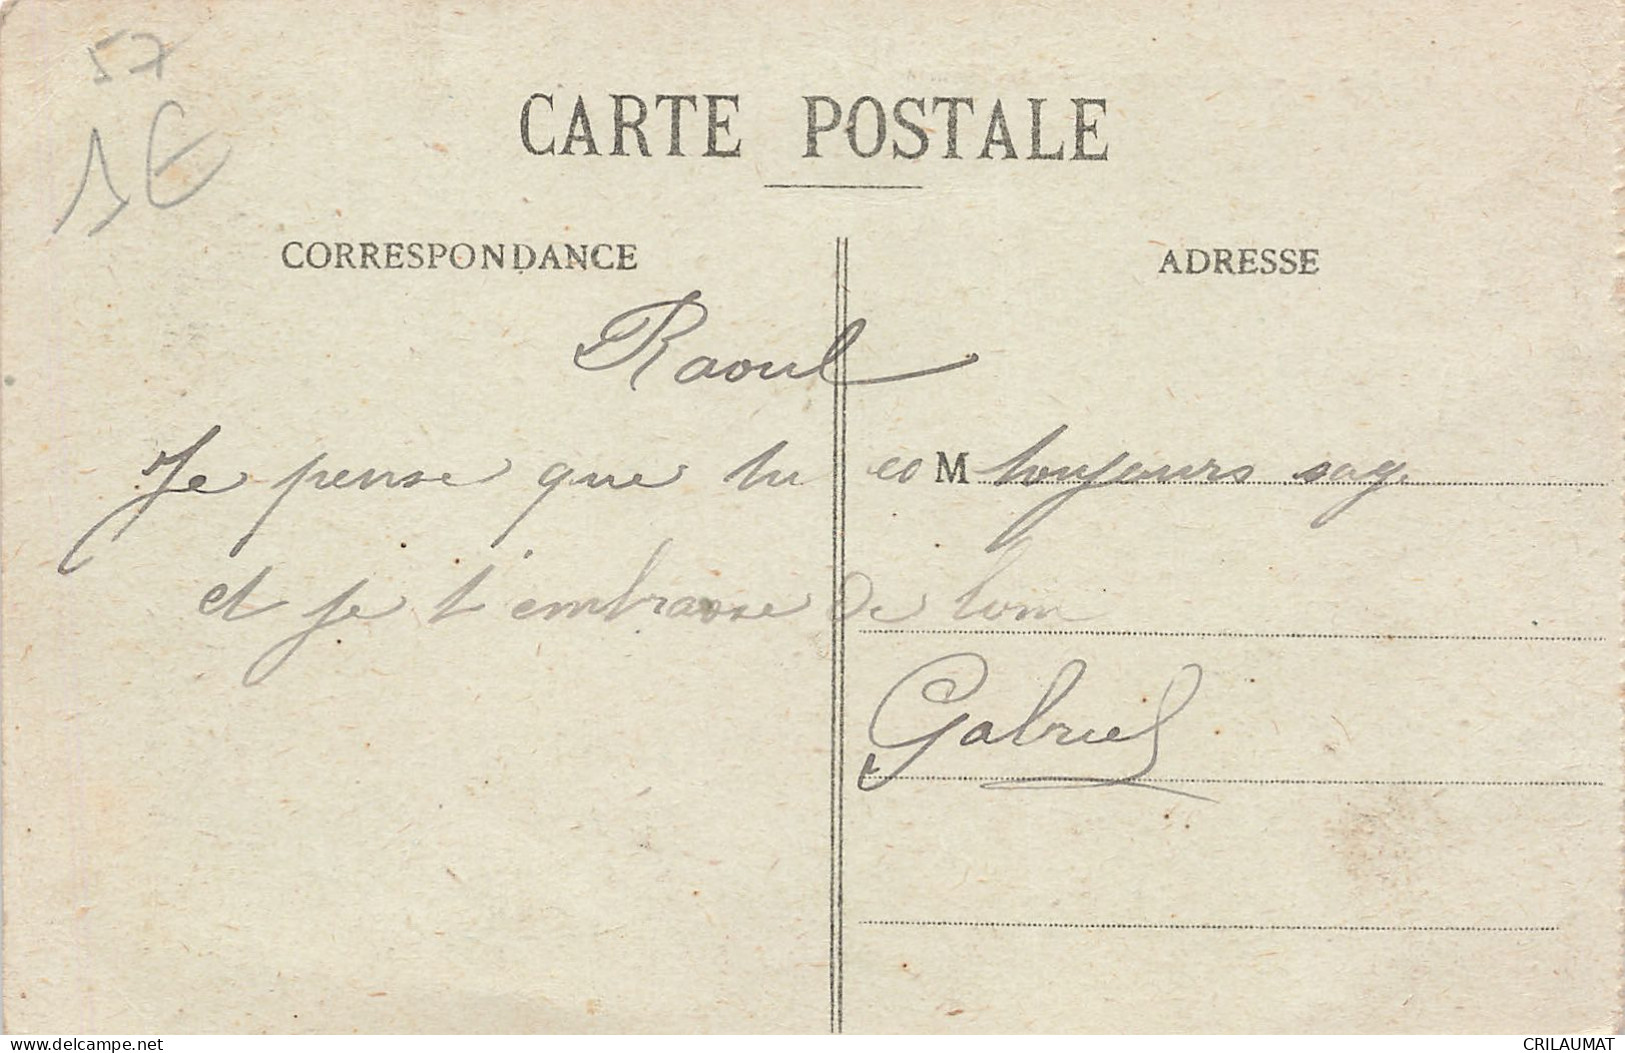 57
1E
CARTE POSTALE
CORRESPONDANCE
ADRESSE
Raoul
Je pense que tu es M toujours sage
et je t'embrasse de loin
Gabriel
www.delcampe.net
CRILAUMAT